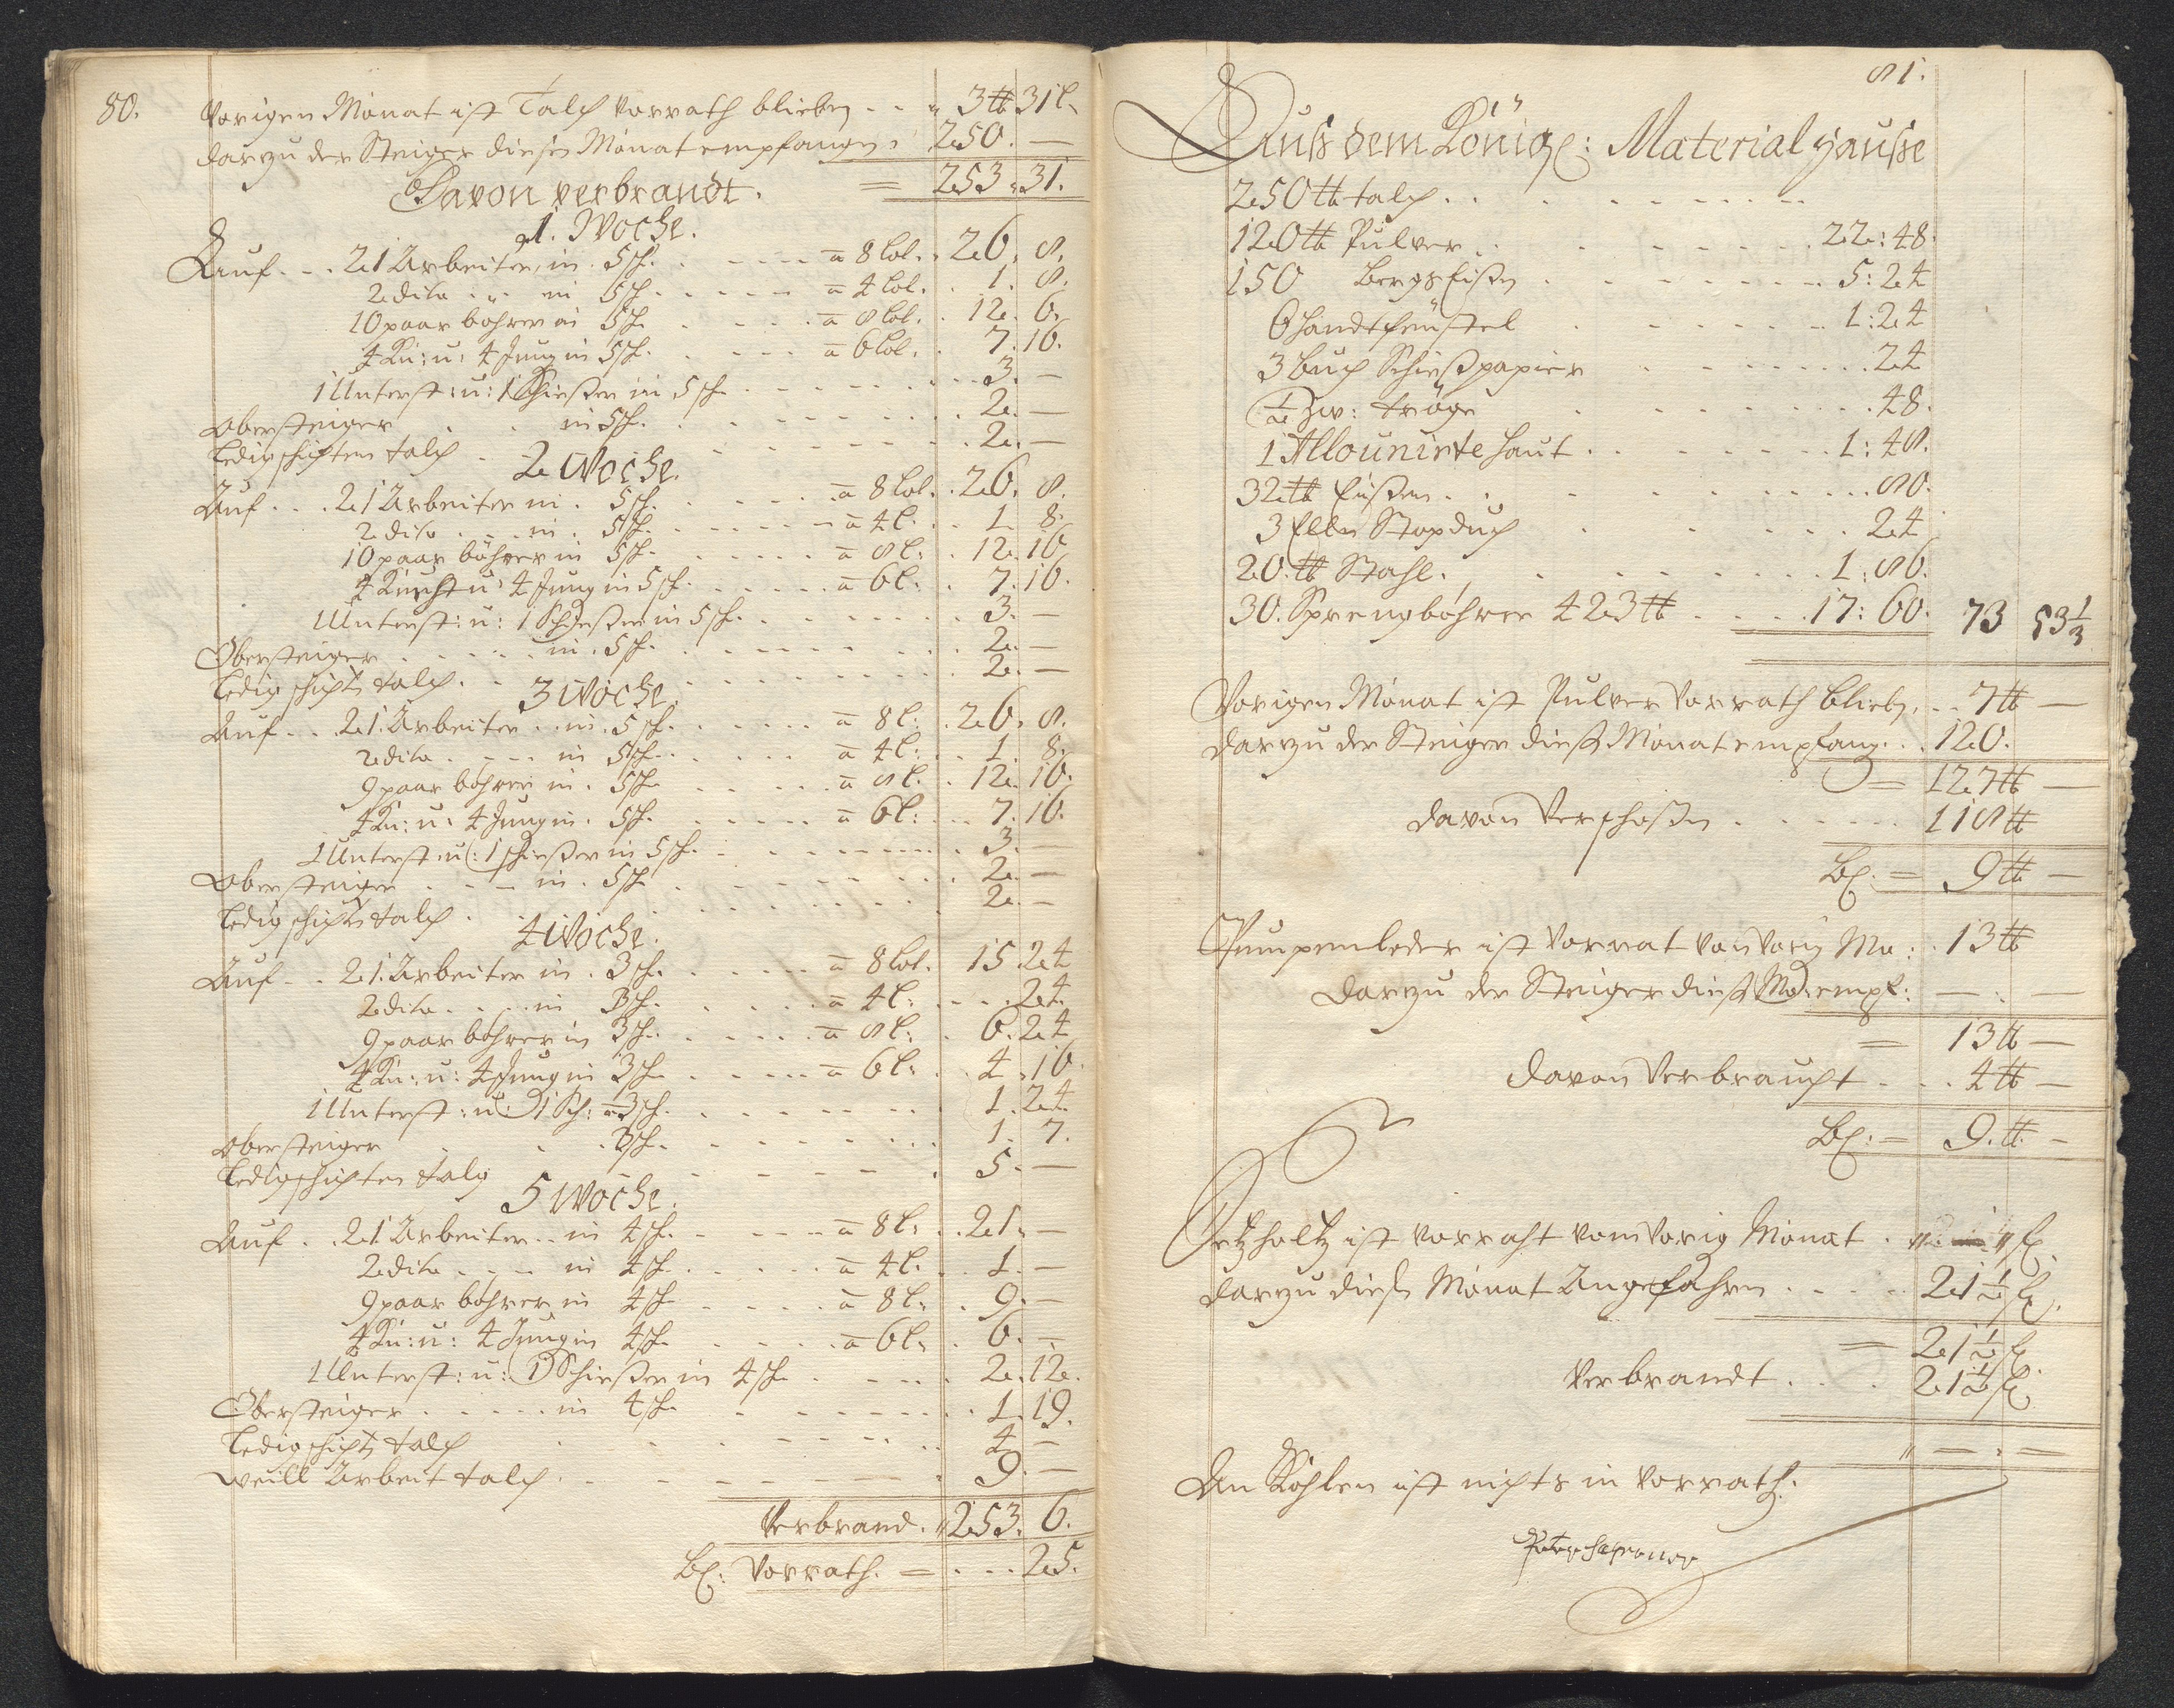 80.
Vorigen Monat ist Talch Vorrath blieben . . „ 3 ℔ 31 l.
darzu der Steiger diesen Monat empfangen 250. —
Davon verbrandt. = 253 . 31.
1. Woche.
Auf . . . 21 Arbeiter, in . 5 sch. . . . à 8 lot. . 26. 8.
2 dito . „ . in 5 sch. . . . à 4 lot. . 1. 8.
10 paar bohrer in 5 sch. . . . à 8 lot. . 12. 6.
4 Kn: u: 4 Jung in 5 sch. . . . à 6 lot. . 7. 16.
1 Unterst: u: 1 Schießer in 5 sch. . . . 3. —
Obersteiger . . in 5 sch. . . . 2. —
Ledigschichten talch . . . 2. —
2 Woche.
Auf . . . 21 Arbeiter in . 5 sch. . . . à 8 lot. . 26. 8.
2 dito . . . in . 5 sch. . . . à 4 l. . 1. 8.
10 paar böhrer in 5 sch. . . . à 8 l: . 12. 16.
4 Knecht u: 4 Jung in 5 sch. . . . à 6 l: . 7. 16.
1 Unterst: u: 1 Schießer in 5 sch. . . . 3. —
Obersteiger . . . in . 5 sch. . . . 2. —
Ledigschicht talch. . . . 2. —
3 Woche.
Auf . . 21. Arbeiter . . in . 5 sch. . . . à 8 l: . 26. 8.
2 dito . . . in 5 sch. . . . à 4 l: . 1. 8.
9 paar bohrer in . 5 sch. . . . à 8 l. . 12. 16.
4 Kn: u: 4 Jung in . 5 sch. . . . à 6 l: . . 7. 16.
1 Unterst: u: 1 schießer in 5 sch. . . . 3. —
Obersteiger . . . in . 5 sch. . . . 2. —
Ledigschicht talch . . . 2. —
4 Woche.
Auf . . 21. Arbeiter in . 3 sch. . . . à 8 lot. 15 24
2 dito . . . in 3 sch. . . . à 4 l: . . . 24.
9 paar bohrer in 3 sch. . . . à 8 l: . 6. 24
4 Kn: u: 4 Jung in 3 sch. . . . à 6 l: . 4. 16.
1 Unterst: u: 1 Sch: à 3 sch. . . . 1. 24.
Obersteiger . . 3 sch. . . . 1. 7.
Ledigschichten talg . . . 5. —
5 Woche.
Auf . . 21 Arbeiter . . in 4 sch. . . . à 8 l: . . 21. —
2 dito . . . in 4 sch. . . . à 4 l. . . 1. —
9 paar bohrer in 4 sch. . . . à 8 l. . 9. —
4 Kn: u: 4 Jung in 4 sch. . . . à 6 l. . 6. —
1 Unterst: u: 1 Schießer in 4 sch. . . . 2. 12.
Obersteiger . . . in 4 sch. . . . 1. 19.
Ledigschicht talch . . . 4 —
weill Arbeit talch . . . 9. —
Verbrand. „ 253. 6.
Bl: Vorrath. = . . . 25.
81.
Auß dem Königl: Material Hauße
250 ℔ talch . . .
120 ℔ Pulver . . . 22: 48.
150 Bergs Eißen . . . 5: 24
6 handtfeüstel . . . 1: 24
3 buch Schießpapier . . . 24
½ Zw: tröge . . . 48.
1 Allounirte Haut . . . 1: 48.
32 ℔ Eißen . . . 80.
3 Ellen Stopduch . . . 24
20. ℔ Stahl. . . . 1: 86.
30. Sprengbohrer 423 ℔ . . . 17: 60. 73 53⅓
Vorigen Monat ist Pulver Vorrath blieb. . . 7 ℔ —
darzu der Steiger dieß Monat empfang. . . 120.
= 127 ℔ —
davon Verschoßen . . . 118 ℔
Bl: = 9 ℔ —
Pumpenleder ist Vorrat von Vorig Mo: . 13 ℔
darzu der Steiger dieß Mo: empf: — . —
= 13 ℔ —
davon Verbraucht . . . 4 ℔ —
Bl: = 9. ℔. —
Setzholtz ist vorraht vom Vorig Monat .
darzu dieß Monat Angefahren . . . 21½ sl.
= 21½ sl
Verbrandt . . . 21½ sl
„ — . —
An Kohlen ist nichts in Vorrath.